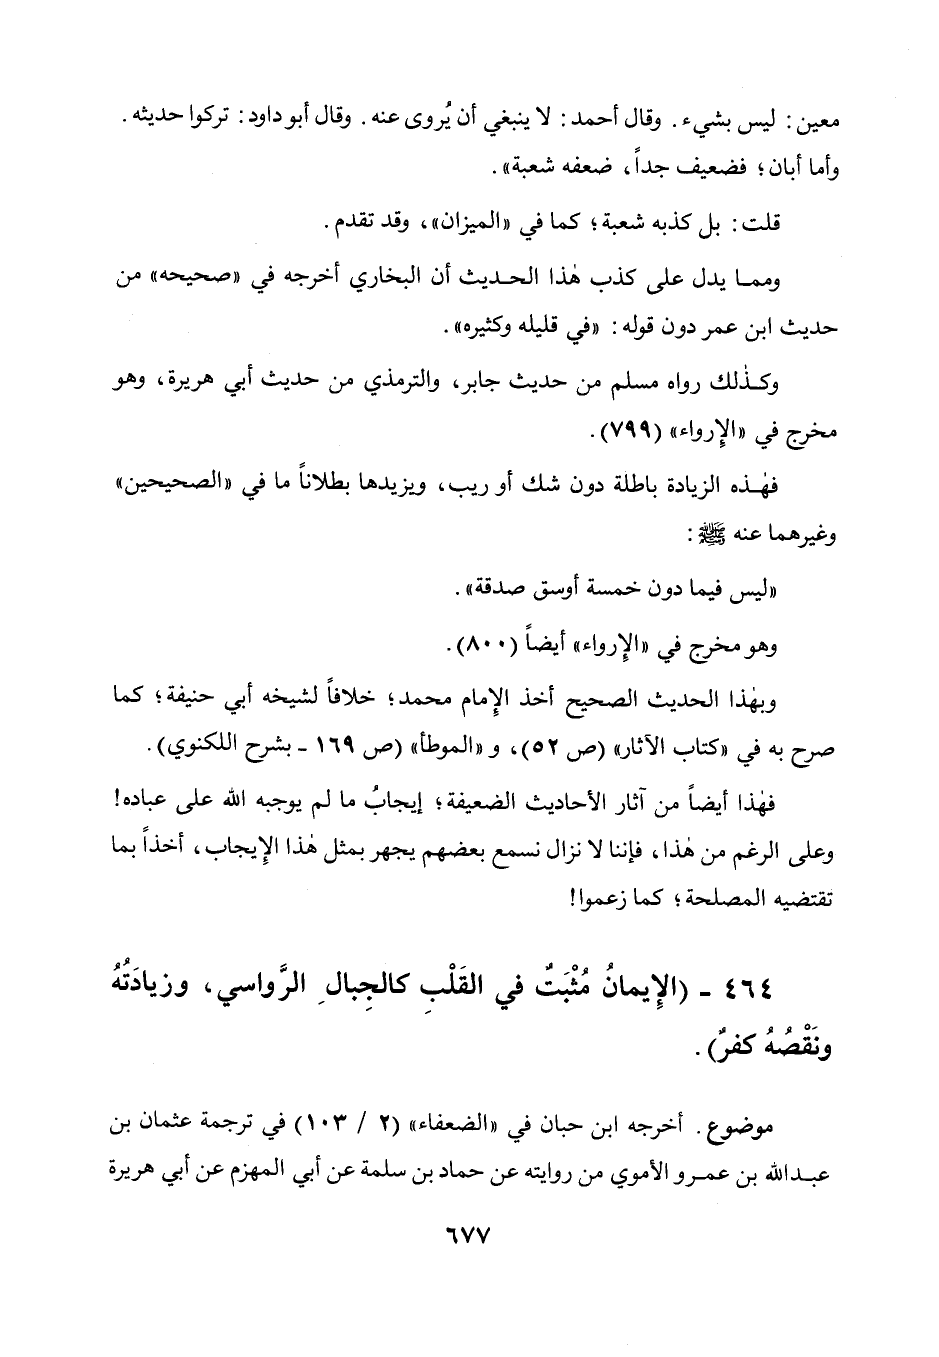 معين: ليس بشيء. وقال أحمد: لا ينبغي أن يُروى عنه. وقال أبو داود: تركوا حديثه.
وأما أبان؛ فضعيف جداً، ضعفه شعبة».
قلت: بل كذبه شعبة؛ كما في «الميزان»، وقد تقدم.
ومما يدل على كذب هٰذا الحديث أن البخاري أخرجه في «صحيحه» من
حديث ابن عمر دون قوله: «في قليله وكثيره».
وكذٰلك رواه مسلم من حديث جابر، والترمذي من حديث أبي هريرة، وهو
مخرج في «الإرواء» (٧٩٩).
فهٰذه الزيادة باطلة دون شك أو ريب، ويزيدها بطلاناً ما في «الصحيحين»
وغيرهما عنه ﷺ:
«ليس فيما دون خمسة أوسق صدقة».
وهو مخرج في «الإرواء» أيضاً (٨٠٠).
وبهٰذا الحديث الصحيح أخذ الإمام محمد؛ خلافاً لشيخه أبي حنيفة؛ كما
صرح به في «كتاب الآثار» (ص ٥٢)، و «الموطأ» (ص ١٦٩ - بشرح اللكنوي).
فهٰذا أيضاً من آثار الأحاديث الضعيفة؛ إيجابُ ما لم يوجبه الله على عباده!
وعلى الرغم من هٰذا، فإننا لا نزال نسمع بعضهم يجهر بمثل هٰذا الإيجاب، أخذاً بما
تقتضيه المصلحة؛ كما زعموا!
٤٦٤ - (الإِيمانُ مُثْبَتٌ في القَلْبِ كالجِبالِ الرَّواسي، وزيادَتُهُ
ونَقْصُهُ كفرٌ).
موضوع. أخرجه ابن حبان في «الضعفاء» (٢ / ١٠٣) في ترجمة عثمان بن
عبدالله بن عمرو الأموي من روايته عن حماد بن سلمة عن أبي المهزم عن أبي هريرة
٦٧٧